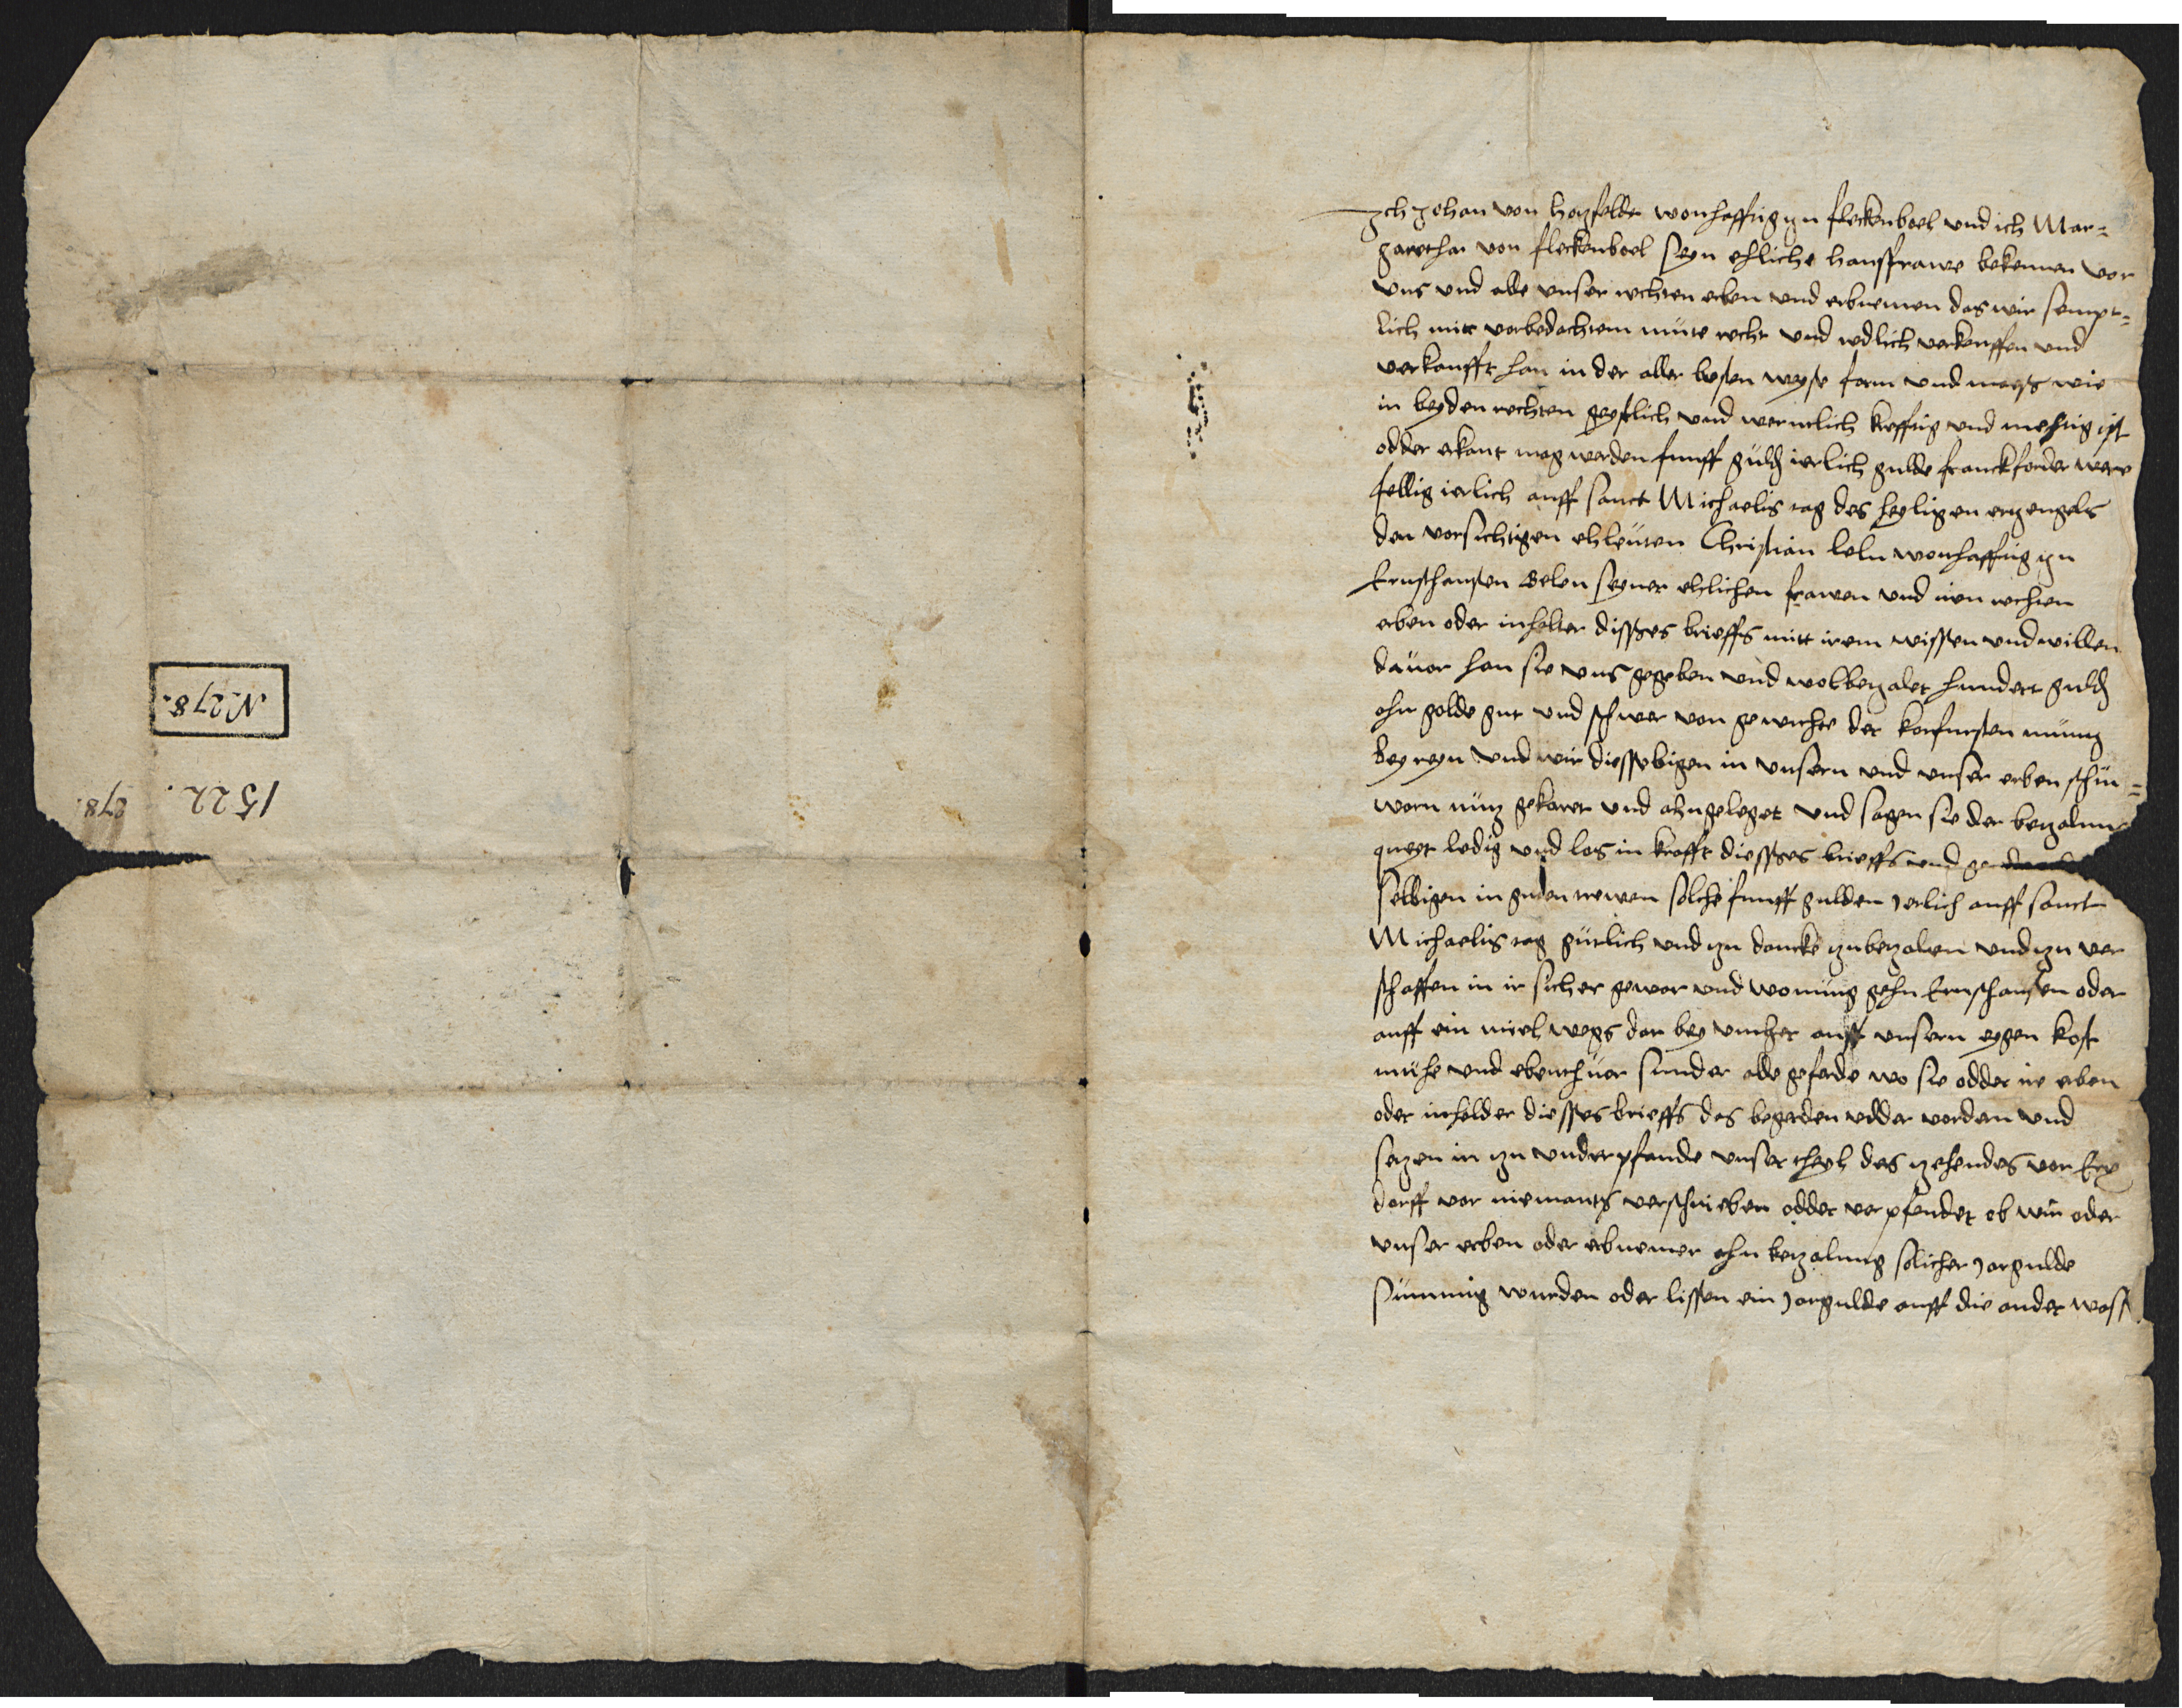 N. 278.
1522.
278.
Ich Johan von hatzfelde wonhafftig zu fleckenboel und ich Mar=
garetha von fleckenboel seyn ehliche hausfrawe bekennen vor
uns und alle unser rechten erben und erbnemen das wir sempt=
lich mitt vorbedachtem müte recht und redlich verkeuffen und
verkaufft han in der aller besten weyse form und mayß wie
in beyden rechten geystlich und werntlich krefftig und mechtig ist
odder erkant mag werden funff guld ierlich gulde franckforder were
fellig ierlich auff sanct Michaelis tag des heyligen ertzengels
den vorsichtigen ehleuten Christian leln wonhafftig zu
Ernsthausen Gelen seyner ehlichen frawen und iren rechten
erben oder inhelter disses brieffs mitt irem wissen und willen
dauor han sie uns gegeben und wolbetzalet hundert guld
ahn golde gut und schwer von gewichte der korfursten müntz
bey reyn und wir diesselbigen in unsern und unser erben schin=
warn nütz gekaret und ahngeleget und sagen sie der betzalung
qweyt ledig und los in krafft diesses brieffs und
selbigen in guden trewen solche funff gulden jerlich auff sanct
Michaelis tag gütlich und zu dancke zubetzalen und zu ver
schaffen in ir sicher gewar und wonung gehn Ernsthausen oder
auff ein miel wegs dar bey umher auff unsern eygen kost
mühe und ebenthuer sunder alle geferde wo sie odder ire erben
oder inhelder diesses brieffs das begerden odder vordern und
setzen in zu underpfande unser theyl des zehendes vor Erx
dorff vor niemants verschrieben odder verpfendet ob wir oder
unser erben oder erbnemer ahn betzalung solicher jargulde
sümmig wurden oder lissen ein jargulde auff die ander wass